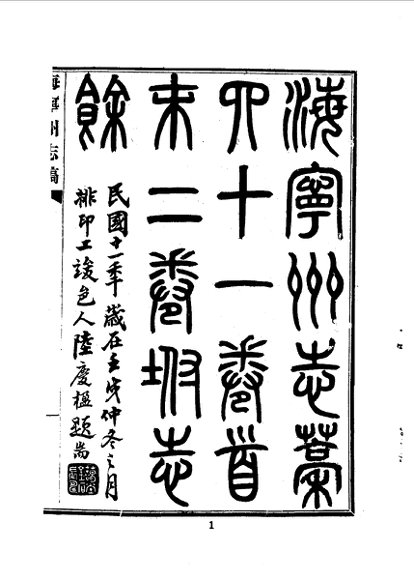 海寧州志藁
四十一卷首
末二卷坿志
餘
民國十一年歲在壬戌仲冬之月
排印工竣邑人陸慶楹題耑
海寧州志稿
一
1